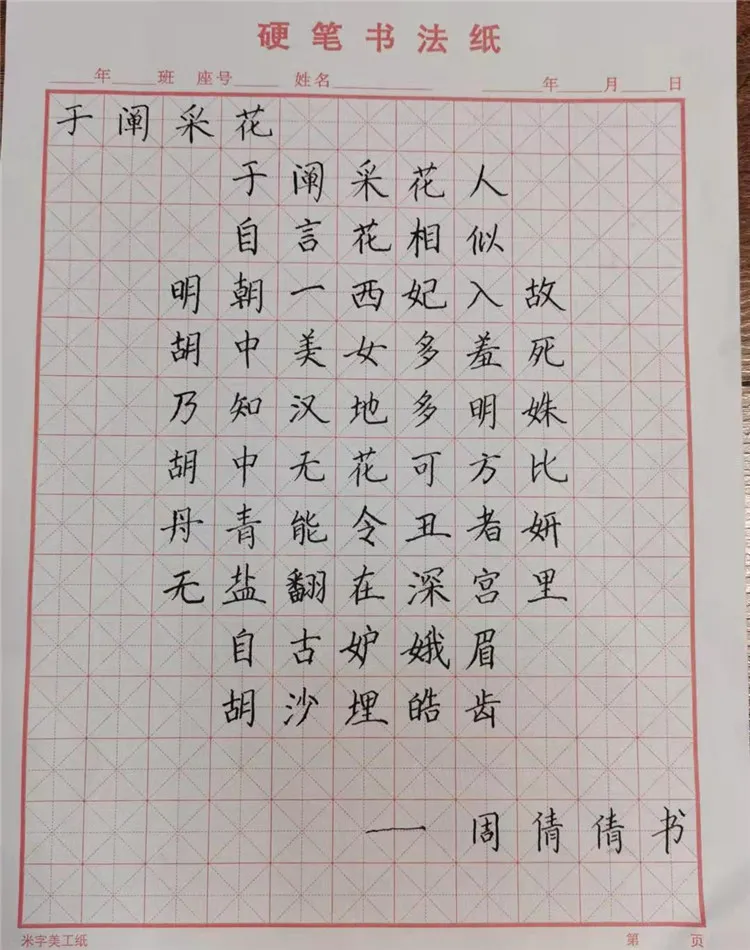 硬笔书法纸
年 班 座号 姓名 年 月 日
于阐采花
于阐采花人
自言花相似
明朝一西妃入故
胡中美女多羞死
乃知汉地多明姝
胡中无花可方比
丹青能令丑者妍
无盐翻在深宫里
自古妒娥眉
胡沙埋皓齿
—— 周倩倩书
米字美工纸 第 页